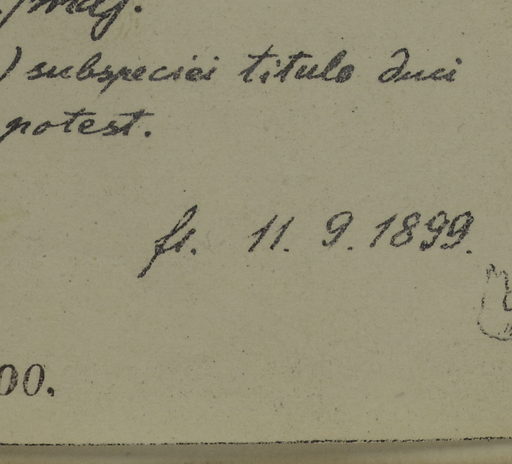 mag.
) subspeciei titulo duci
potest.
fr. 11. 9. 1899.
00.